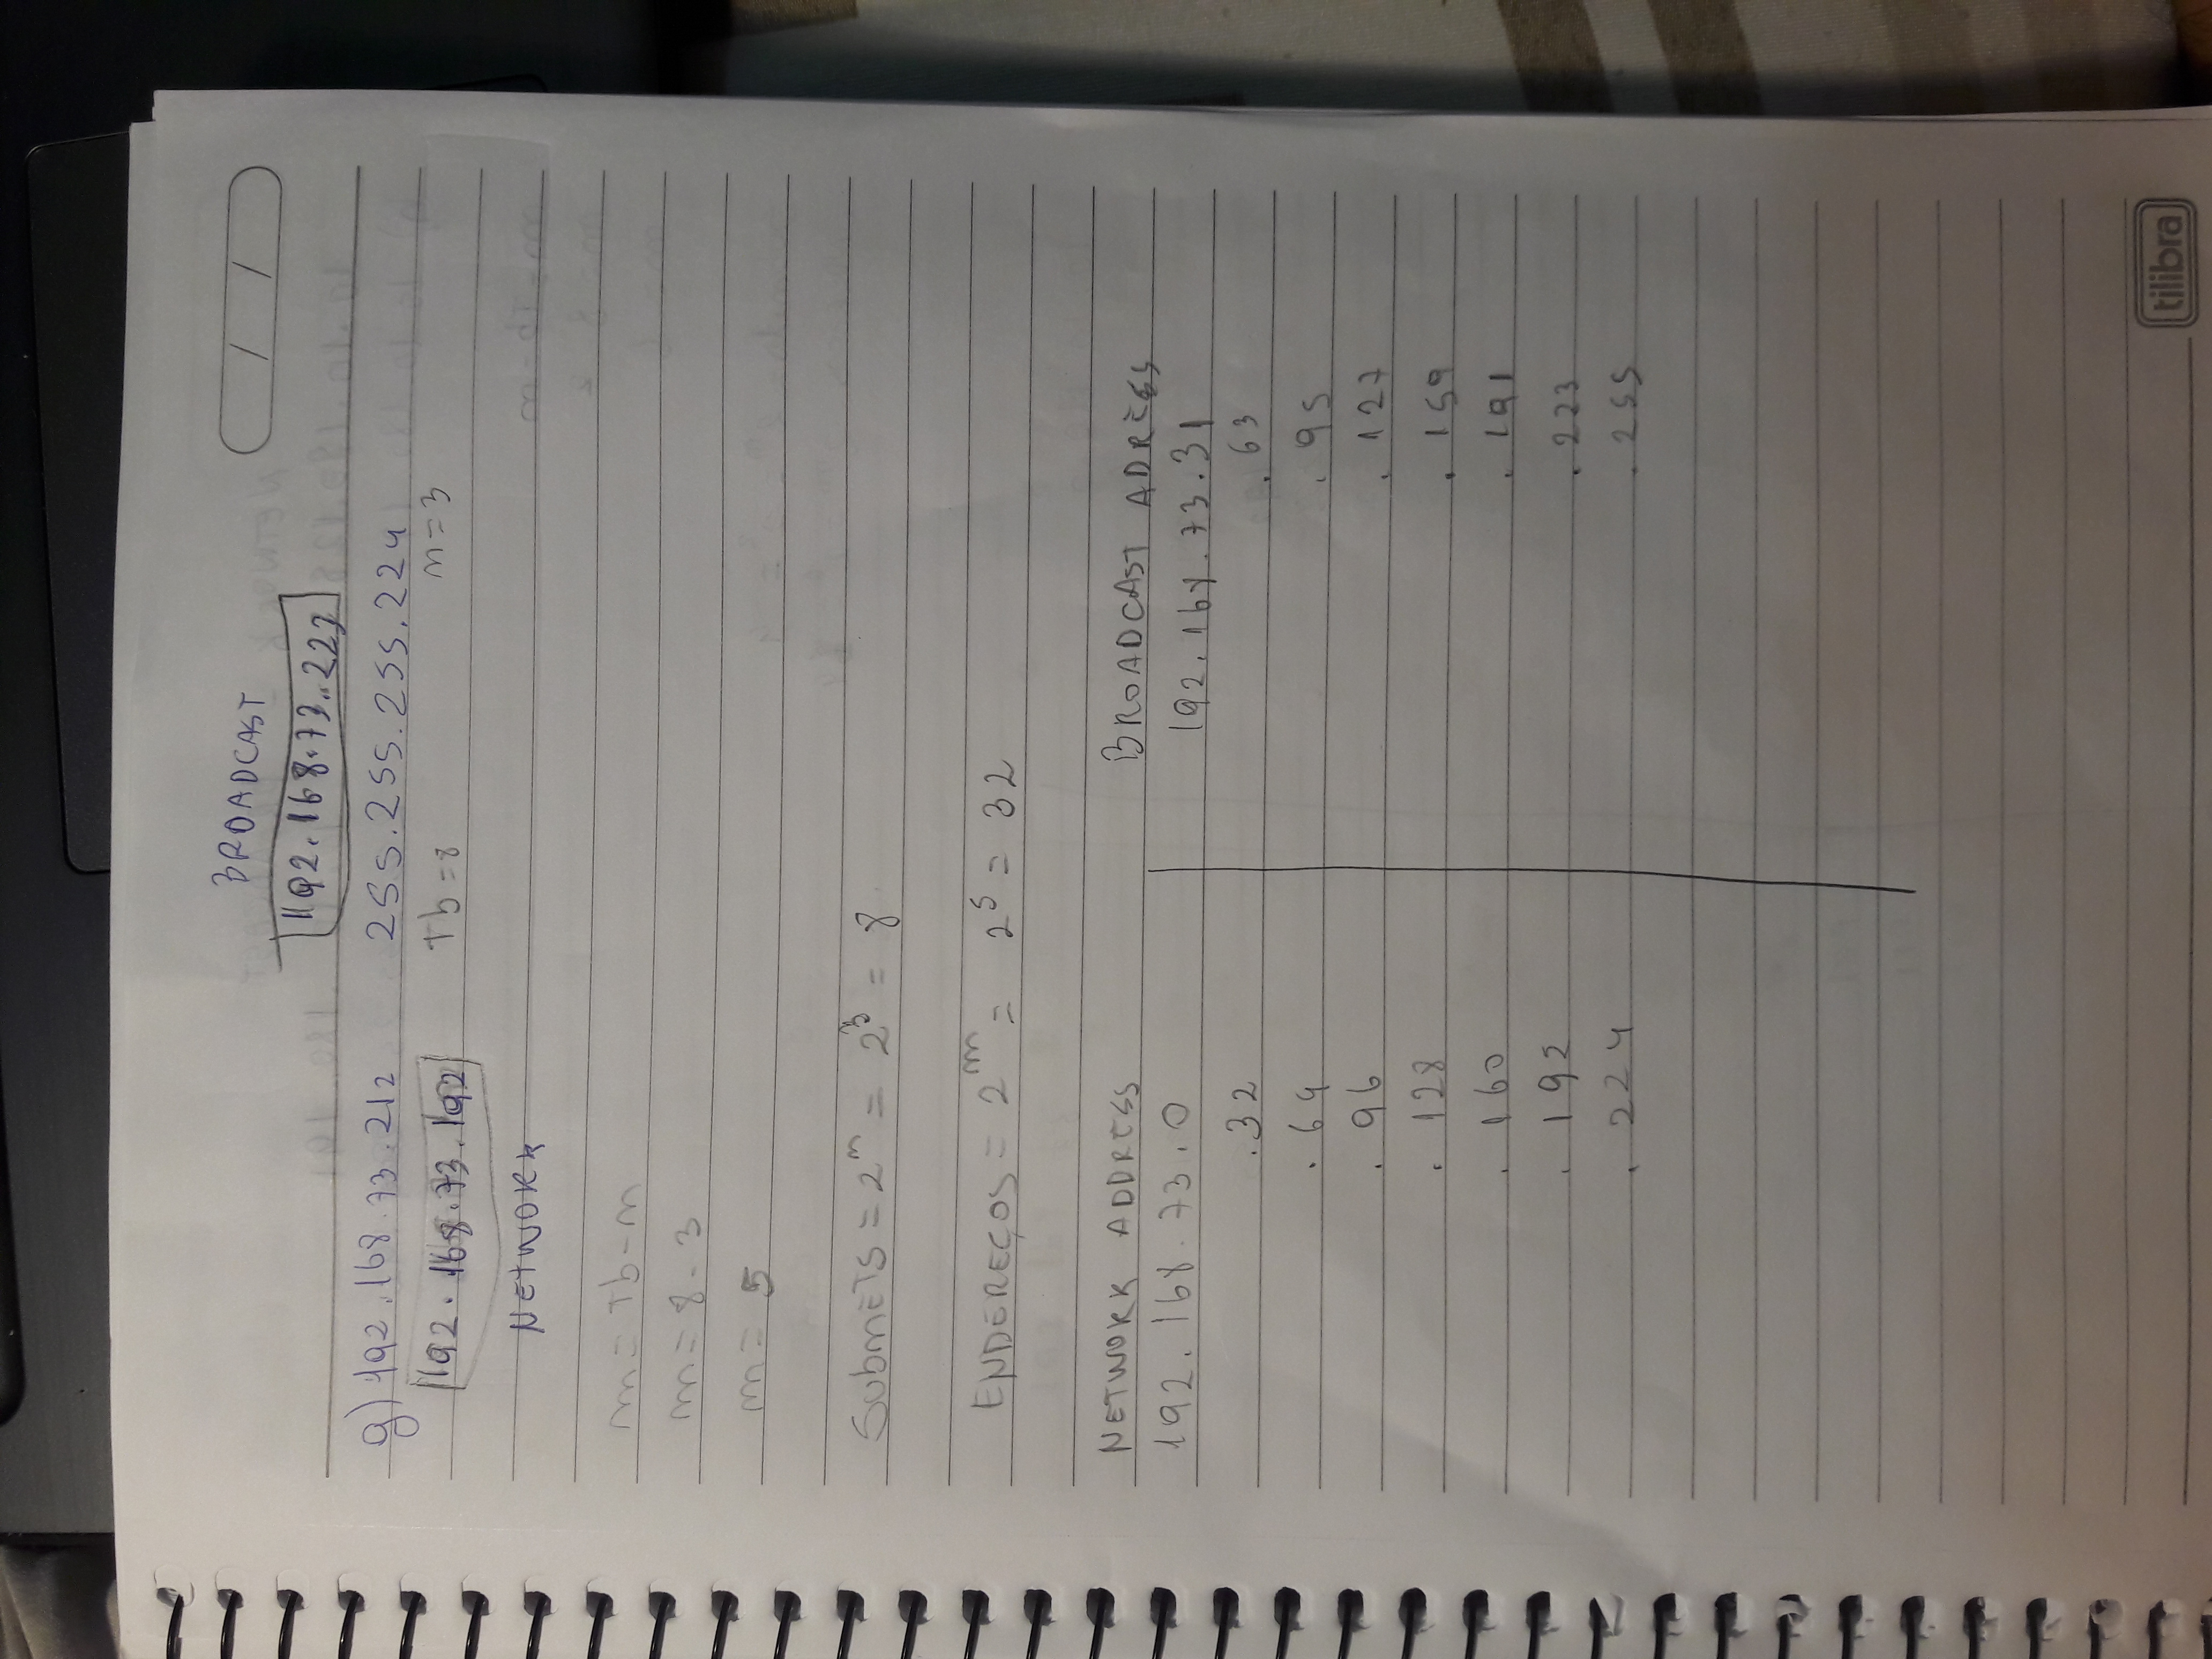 BROADCAST
192.168.73.223
g) 192.168.73.212 255.255.255.224
192.168.73.192 Tb=8 n=3
NETWORK
m= Tb-n
m= 8-3
m= 5
SubnETS = 2^n = 2^3 = 8
ENDEREÇOS = 2^m = 2^5 = 32
NETWORK ADDRESS BROADCAST ADRESS
192.168.73.0 192.168.73.31
.32 .63
.64 .95
.96 .127
.128 .159
.160 .191
.192 .223
.224 .255
tilibra